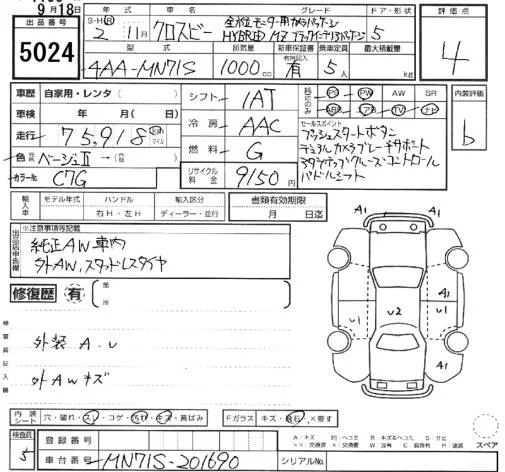 9月18日
出品番号 5024
S・H・R 年式 2年 11月
車名 クロスビー
グレード 全方位モニター用カメラパッケージ
HYBRID MZ
ドア・形状 5
評価点 4
型式 4AA-MN71S
排気量 1000cc
新車保証書 有
乗車定員 5人
最大積載量 kg
車歴 自家用・レンタ( )
車検 年 月( 日)
走行 75,918 km マイル
色 ベージュⅡ →(色替 )
カラーNo. C7G
シフト 1AT
冷房 AAC
燃料 G
リサイクル料金 9150円
純正のみ PS PW AW SR
ABS エアB TV ナビ
内装評価 b
セールスポイント
プッシュスタートボタン
デュアルカメラブレーキサポート
アダプティブクルーズコントロール
パドルシフト
輸入車 モデル年式 ハンドル 右H・左H 輸入区分 ディーラー・並行
書類有効期限 月 日迄
出品店申告欄 ※注意事項等記載
純正AW車内
外AW,スタッドレスタイヤ
修復歴 有 箇所
検査員記入欄
外装 A.U
外AWキズ
A1
A1
A1
U1
U2
U1
A1
内装シート 穴・破れ・スレ・コゲ・汚れ・キズ・黄ばみ
Fガラス キズ・飛石・×要す
検査員 5
登録番号
車台番号 MN71S-201690
シリアルNo.
スペア